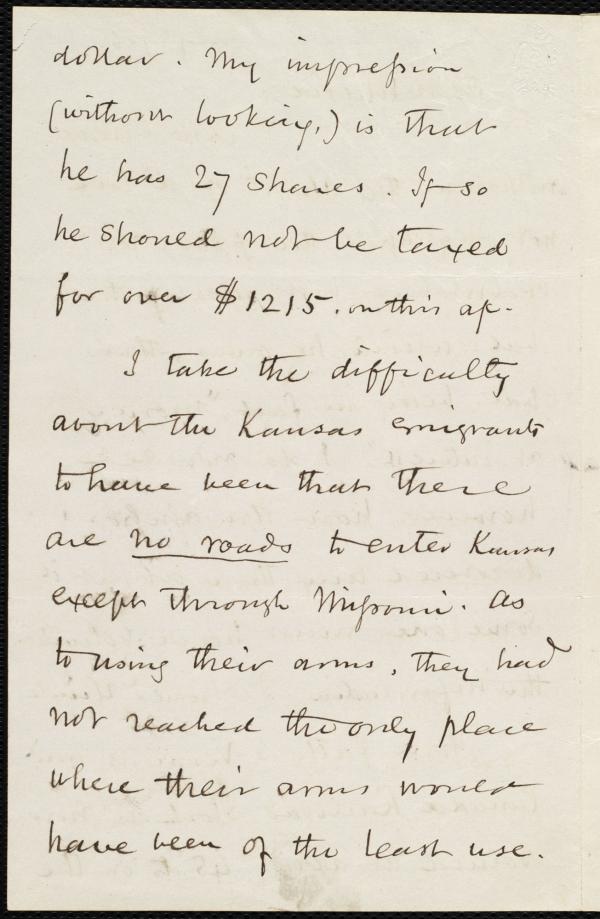 dollar. My impression
(without looking,) is that
he has 27 shares. If so
he should not be taxed
for over $1215. on this ap.
I take the difficulty
about the Kansas emigrants
to have been that there
are no roads to enter Kansas
except through Missouri. As
to using their arms, they had
not reached the only place
where their arms would
have been of the least use.